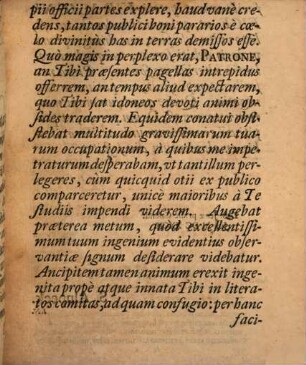 pii officii partes explere, haud vanè cre-
dens, tantos publici boni pararios è cœ-
lo divinitùs has in terras demissos esse.
Quò magis in perplexo erat, PATRONE,
an Tibi præsentes pagellas intrepidus
offerrem, an tempus aliud expectarem,
quo Tibi sat idoneos devoti animi ob-
sides traderem. Equidem conatui obsi-
stebat multitudo gravissimarum tua-
rum occupationum, à quibus me impe-
traturum desperabam, vt tantillum per-
legeres, cùm quicquid otii ex publico
comparceretur, unicè maioribus à Te
studiis impendi viderem. Augebat
præterea metum, quòd excellentissi-
mum tuum ingenium evidentius obser-
vantiæ signum desiderare videbatur.
Ancipitem tamen animum erexit inge-
nita propè atque innata Tibi in litera-
tos comitas, ad quam confugio: per hanc
faci-